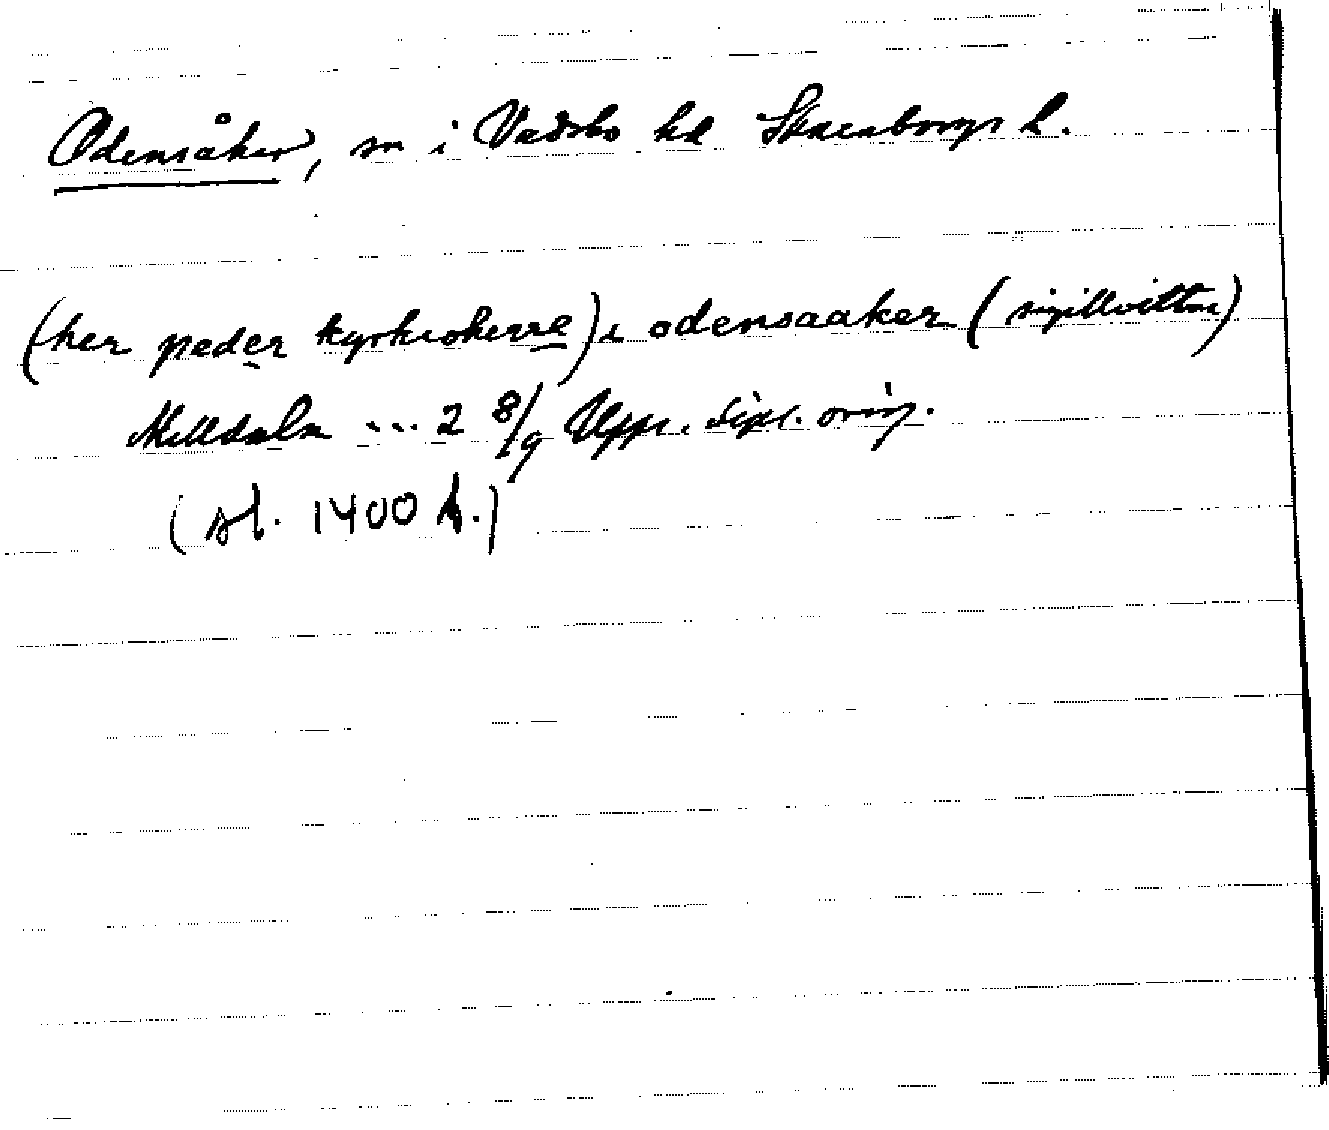 Odensåker, sn i Vadsbo hd Skaraborgs l.
(her peder kyrkioherre) i odensaaker (sigillvittne)
Milldala ... 2 8/9 Upps. dipl. orig.
(sl. 1400 t.)